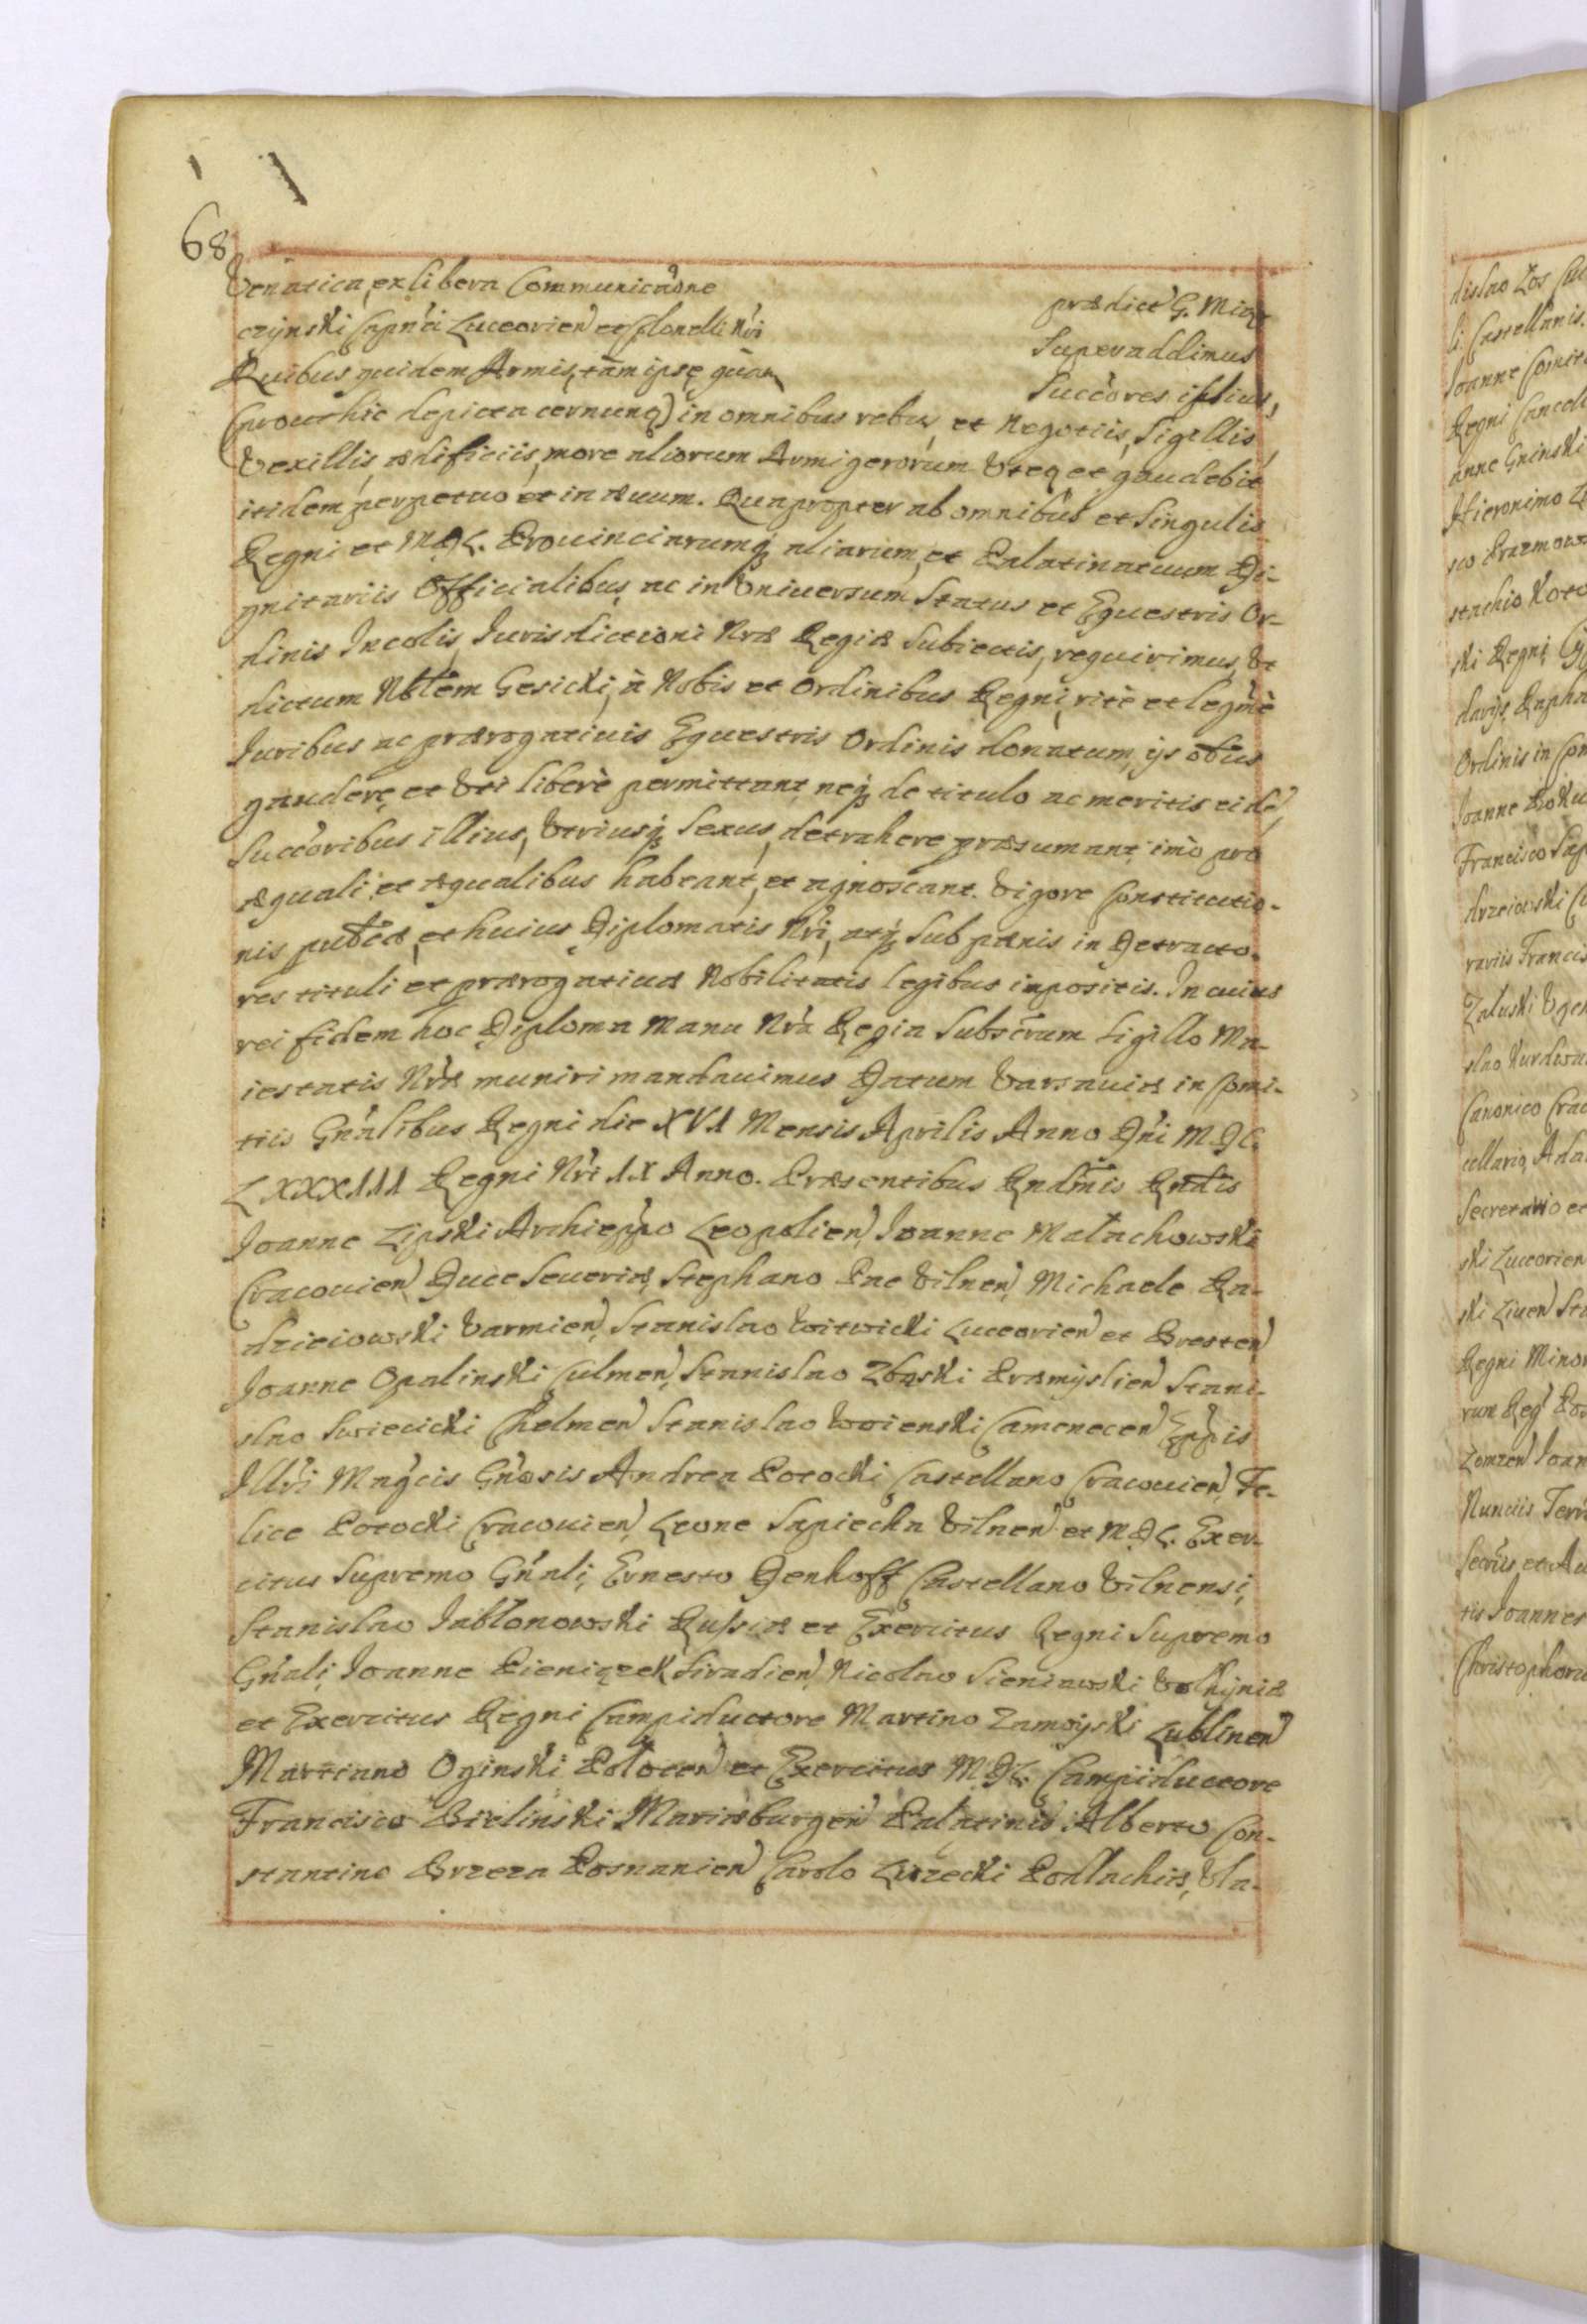 68
Venatica, ex libera Communicaõne prædict' G. Miąc
czÿnski Capn'ci Luceorien' et Colonelli Nr'i Superaddimus
Quibus quidem Armis, tam ipse quam Succ'ores ipsius,
(prout hic depicta cernunt') in omnibus rebus, et Negotiis, Sigillis,
Vexillis, ædificiis, more aliorum Armigerorum Utet' et gaudebit
itidem perpetuo et in ævum. Quapropter ab omnibus et Singulis
Regni et M.D.L. Provinciarumq; aliarum, et Palatinatuum Di-
gnitariis Officialibus, ac in Universum Status et Equestris Or-
dinis Incolis, Jurisdictioni Nr'æ Regiæ Subiectis, requirimus, Ut
dictum Nbl'em Gesicki, à Nobis et Ordinibus Regni, ritè et legm'è
Juribus ac prærogativis Equestris Ordinis donatum, ijs o'bus
gaudere, et Uti liberè permittant neq; de titulo ac meritis eide',
Succ'oribus illius, Utriusq; Sexus, detrahere præsumant, imò pro
æquali, et æqualibus habeant, et agnoscant. Vigore Constitutio-
nis publ'cæ, et huius Diplomatis Nr'i, atq; Sub pænis in Detracto-
res tituli et prærogativæ Nobilitatis legibus inpositis. In cuius
rei fidem hoc Diploma Manu Nr'a Regia Subscr'um Sigillo Ma-
iestatis Nr'æ muniri mandavimus Datum Varsaviæ in Comi-
tiis Gn'alibus Regni die XVI Mensis Aprilis Anno Dn'i MDC
LXXXIII Regni Nr'i IX Anno. Præsentibus Rndm'is Rndis
Joanne Lipski Archiepp'o Leopolien', Joanne Małachowski
Cracovien' Duce Severiæ, Stephano Pac Vilnen', Michaele Ra-
dzieiowski Varmien', Stanislao Witwicki Luceorien' et Bresten'
Joanne Opalinski Culmen', Stanislao Zbąski Præmÿslien' Stani-
slao Swiecicki Chelmen' Stanislao Woienski Camenecen' Epp'is
Illr'i Mag'cis Gn'osis Andrea Potocki Castellano Cracovien', Fe-
lice Potocki Cracovien', Leone Sapiecha Vilnen' et M.D.L. Exer-
citus Supremo Gn'ali, Ernesto Denhoff Castellano Vilnensi,
Stanislao Jabłonowski Russiæ et Exercitus Regni Supremo
Gn'ali, Joanne Pieniązek Siradien', Nicolao Sieniawski Volhÿniæ
et Exercitus Regni Campiductore Martino Zamoÿski Lublinen'
Martiano Oginski Połocen' et Exercitus M.D.L. Campiductore
Francisco Bielinski Mariæburgen' Palatinis Alberto Con-
stantino Breza Posnanien' Carolo Łuzecki Podlachiæ, Vla-
dislao Łos
li, Castellanis
Joanne Comit
Regni Cancell
anne Gninski
Hieronimo
stachio Koto
ski Regni
Ordinis in Con
Joanne Koku
Francisco Sap
drzeiowski
rariis Francis
Załuski
Canonico Crac
cellario, Ada
Secretario et
ski Luceorien
ski Liven' Sta
Regni Minor
Łomzen' Joan
Nunciis Terr
tis Joannes
Christophoro